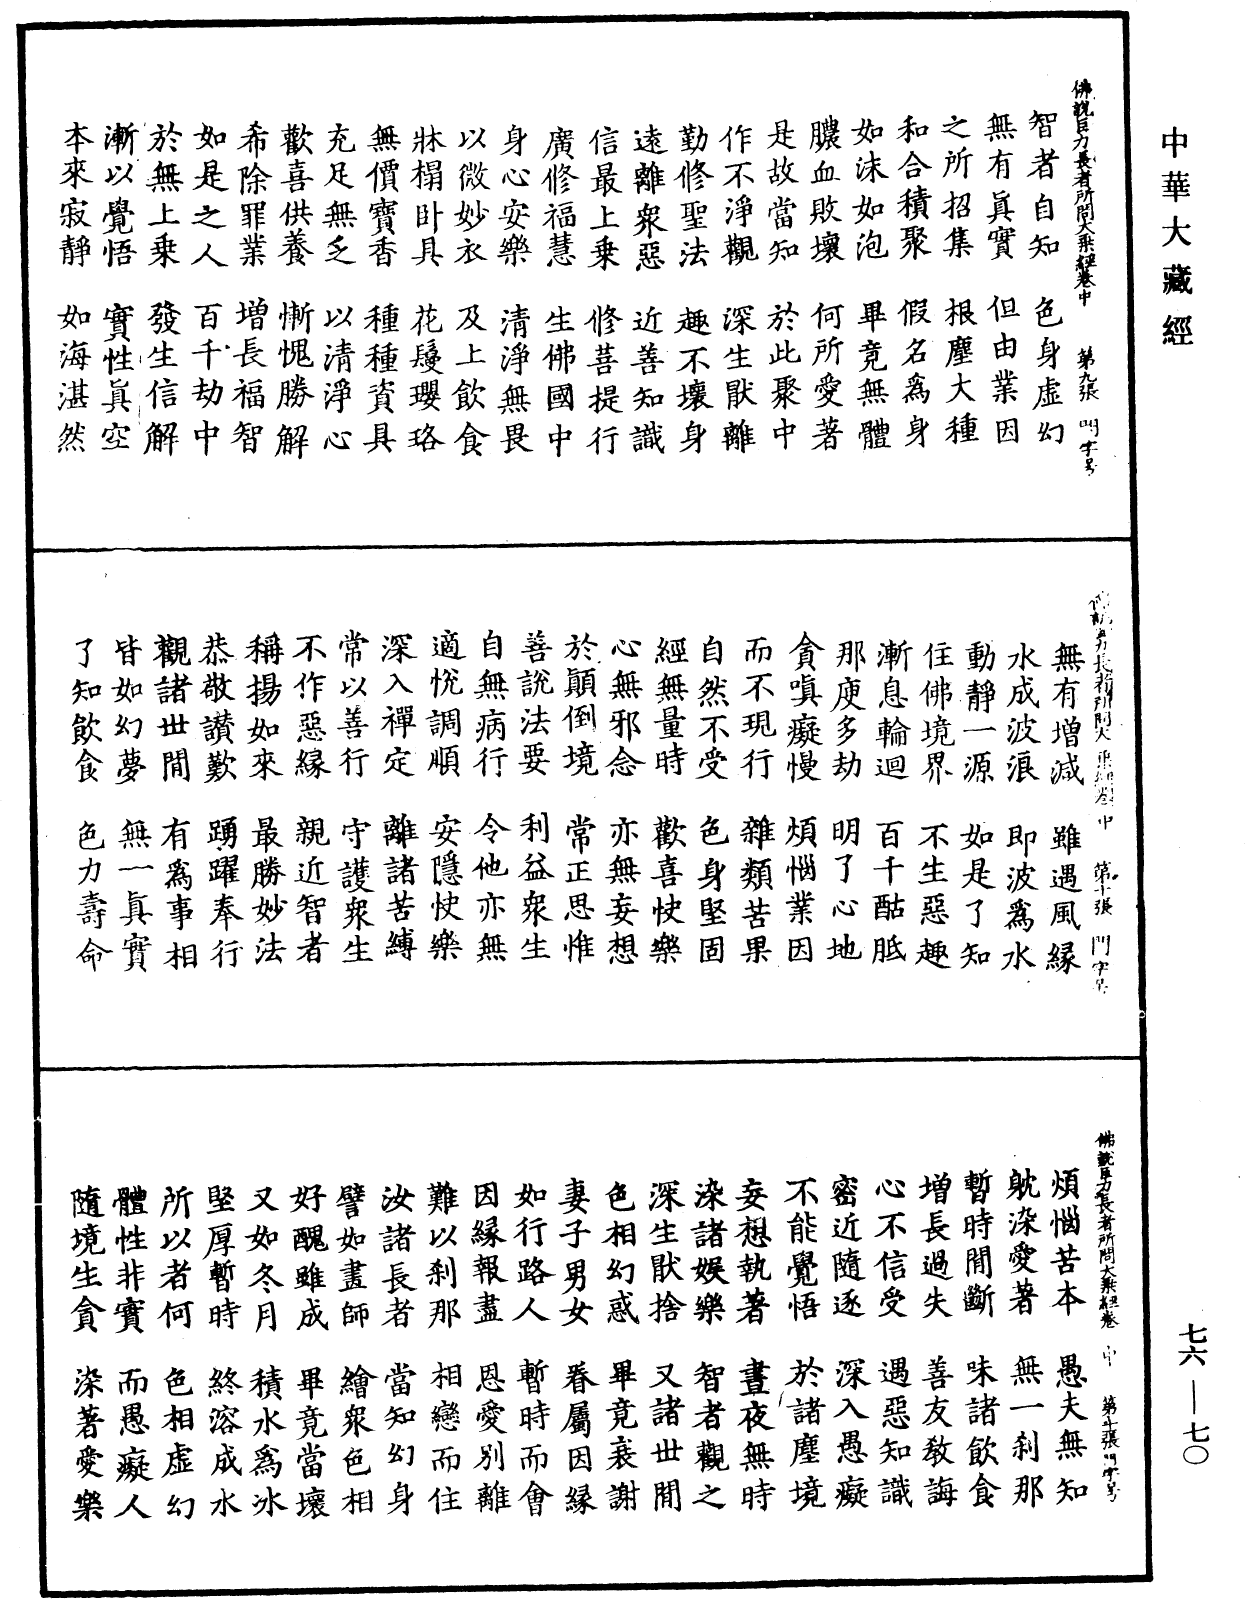 中華大藏經
佛説巨力長者所問大乘經卷中 第九張 門字号
智者自知 色身虚幻
無有真實 但由業因
之所招集 根塵大種
和合積聚 假名爲身
如沫如泡 畢竟無體
膿血敗壞 何所愛著
是故當知 於此聚中
作不淨觀 深生猒離
勤修聖法 趣不壞身
遠離衆惡 近善知識
信最上乗 修菩提行
廣修福慧 生佛國中
身心安樂 清淨無畏
以微妙衣 及上飲食
牀榻卧具 花鬘瓔珞
無價寶香 種種資具
充足無乏 以清淨心
歡喜供養 慚愧勝解
希除罪業 増長福智
如是之人 百千劫中
於無上乗 發生信解
漸以覺悟 實性真空
本來寂靜 如海湛然
佛説巨力長者所問大乘經卷中 第十張 門字号
無有増減 雖遇風緣
水成波浪 即波爲水
動靜一源 如是了知
住佛境界 不生惡趣
漸息輪迴 百千酤胝
那庾多劫 明了心地
貪嗔癡慢 煩惱業因
而不現行 雜類苦果
自然不受 色身堅固
經無量時 歡喜快樂
心無邪念 亦無妄想
於顛倒境 常正思惟
善説法要 利益衆生
自無病行 令他亦無
適悅調順 安隱快樂
深入禪定 離諸苦縛
常以善行 守護衆生
不作惡緣 親近智者
稱揚如來 最勝妙法
恭敬讃歎 踴躍奉行
觀諸世間 有爲事相
皆如幻夢 無一真實
了知飲食 色力壽命
佛説巨力長者所問大乘經卷中 第十一張 門字号
煩惱苦本 愚夫無知
躭染愛著 無一刹那
暫時間斷 味諸飲食
増長過失 善友教誨
心不信受 遇惡知識
密近隨逐 深入愚癡
不能覺悟 於諸塵境
妄想執著 晝夜無時
染諸娛樂 智者觀之
深生猒捨 又諸世間
色相幻惑 畢竟衰謝
妻子男女 眷屬因緣
如行路人 暫時而會
因緣報盡 恩愛別離
難以刹那 相戀而住
汝諸長者 當知幻身
譬如畫師 繪衆色相
好醜雖成 畢竟當壞
又如冬月 積水爲冰
堅厚暫時 終溶成水
所以者何 色相虚幻
體性非實 而愚癡人
隨境生貪 染著愛樂
七六—七〇